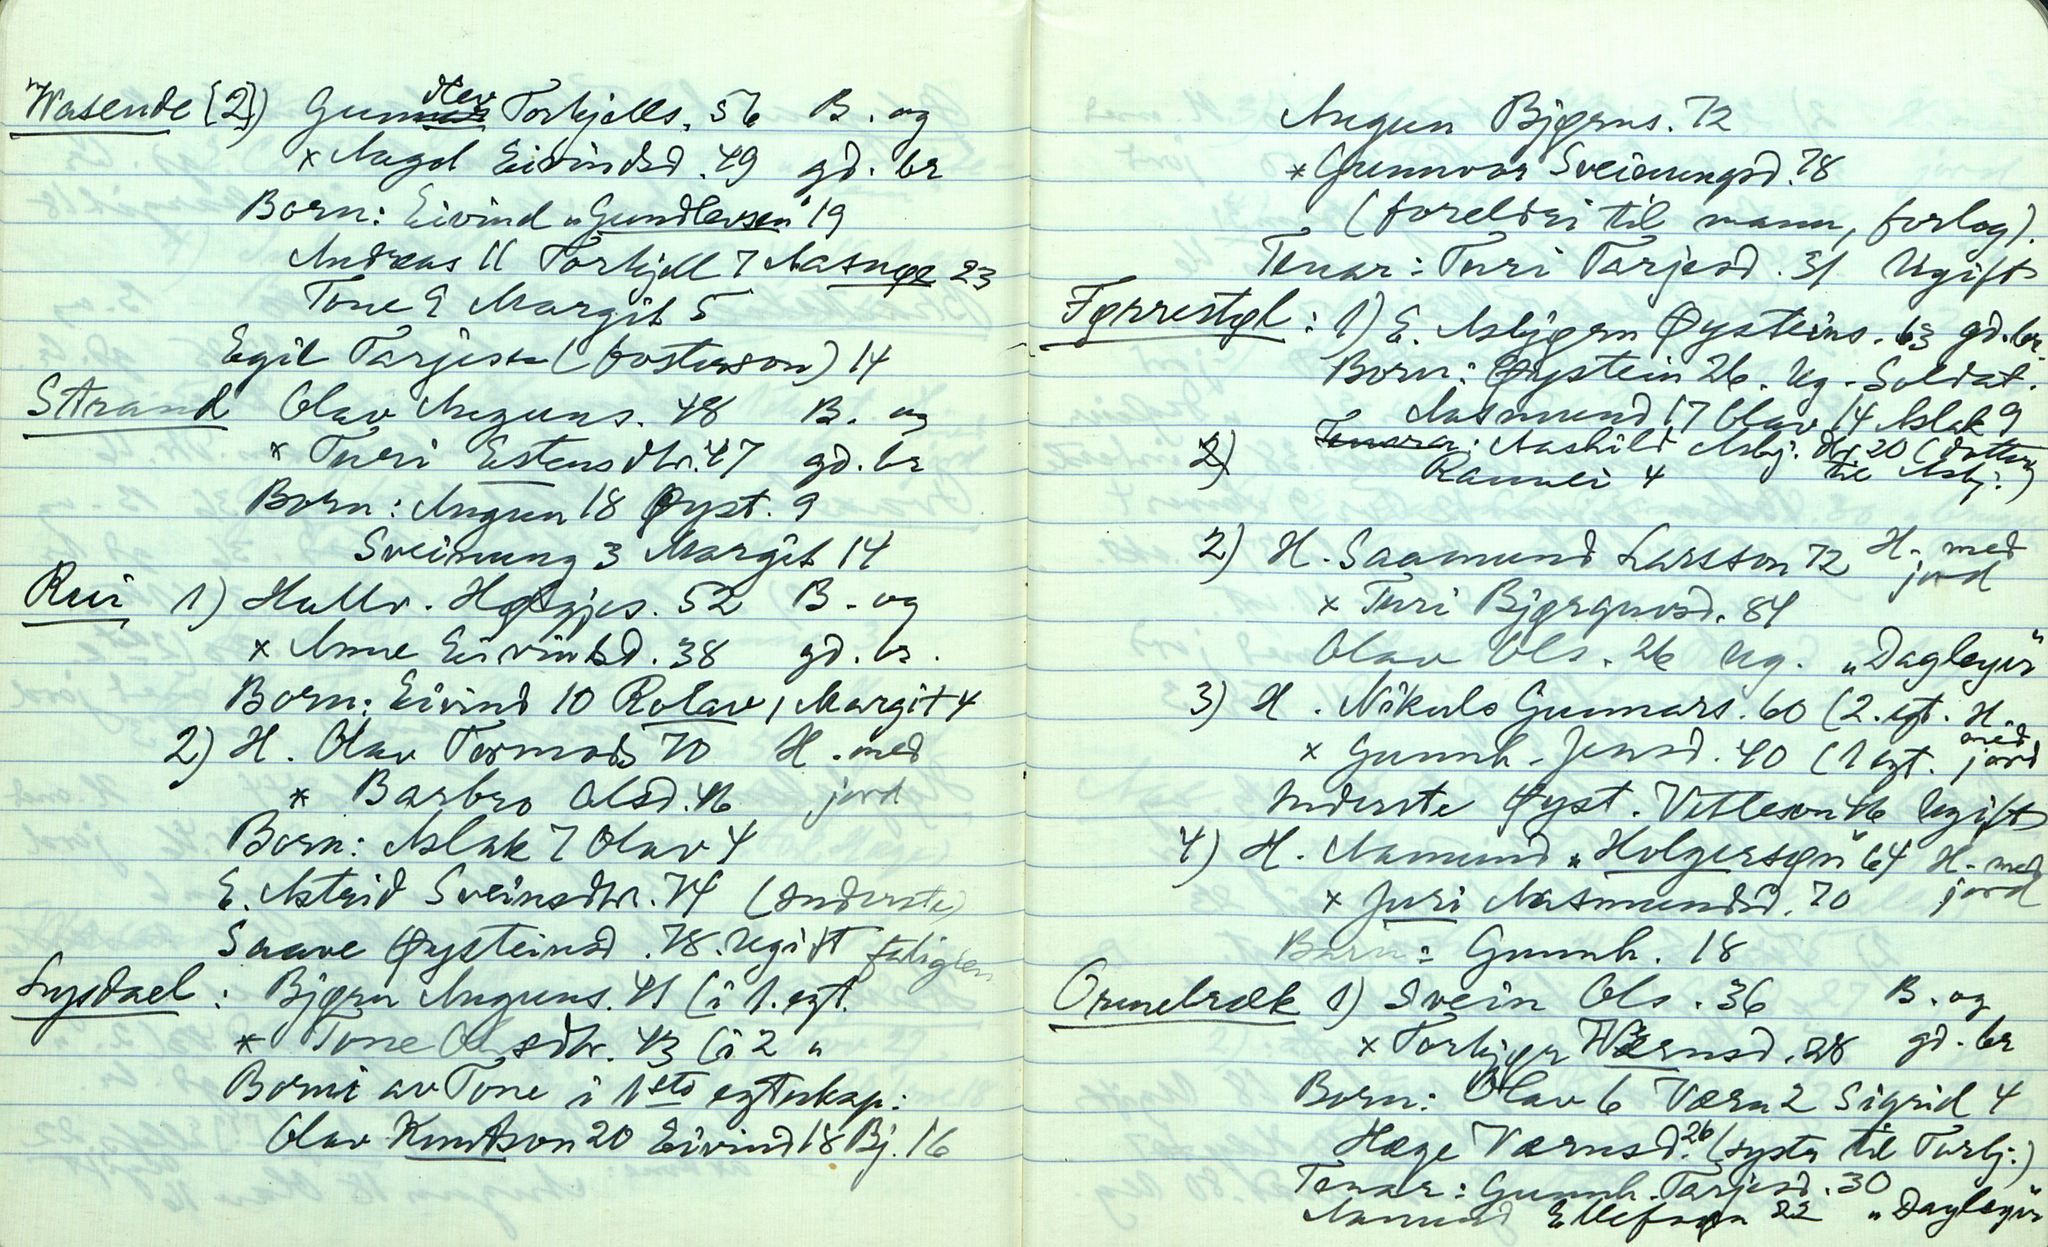 Wasende [2]) Gunnlev Torkjells. 56 B. og
x Aagot Eivindsd. 49 gd. br
Born: Eivind "Gundlevsen" 19
Andreas 11 Torkjell 7 Aasne 23
Tone 9 Margit 5
Egil Tarjeson (fosterson) 14
Strand Olav Auguns. 48 B. og
x Turi Estensdtr. 47 gd. br
Born: Augun 18 Øyst. 9
Sveinung 3 Margit 14
Rui 1) Hallv. Høgjes. 52 B. og
x Anne Eivindsd. 38 gd. br.
Born: Eivind 10 Rolav 1 Margit 4
2) H. Olav Tormods 70 H. med
x Barbro Olsd. 46 jord
Born: Aslak 7 Olav 4
E. Astrid Sveinsdtr. 74 (Inderste)
Saave Øysteinsd. 78. Ugift fatiglem
Lysdael: Bjørn Auguns. 41 (i 1. egt.
x Tone Olsdtr. 43 (i 2 "
Borni av Tone i 1sto egtaskap:
Olav Knutson 20 Eivind 18 Bj. 16
Augun Bjørns. 72
x Gunnvor Sveinungsd. 78
(foreldri til mann, forlog).
Tenar: Turi Tarjesd. 31 Ugift
Førrestøl: 1) E. Asbjørn Øysteins. 63 gd. br.
Born: Øystein 26. Ug. Soldat.
Aasmund 17 Olav 14 Aslak 9
2) Tenarar: Aashild Asbj. dtr 20 (dotter
Rannei 4 til Asbj.)
2) H. Saamund Larsson 72 H. med
jord
x Turi Bjørguvsd. 84
Olav Ols. 26 Ug. "Dagleyer"
3) H. Nikuls Gunnars. 60 (2. egt. H.
med
x Gunnh. Jensd. 40 (1 egt. jord
Inderste Øyst. Vetleson 46 Ugift
4) H. Aamund "Holgersøn" 64 H. med
x Juri Aasmundsd. 70 jord
Barn: Gunnh. 18
Ormebræk 1) Svein Ols. 36 B. og
x Torbjør Wærnsd. 28 gd. br
Born: Olav 6 Værn 2 Sigrid 4
Hæge Værnsd. 26 (syster til Turbj.)
Tenar: Gunnh. Tarjesd. 30
Aamund Ellefsøn 22 "Dagleyer